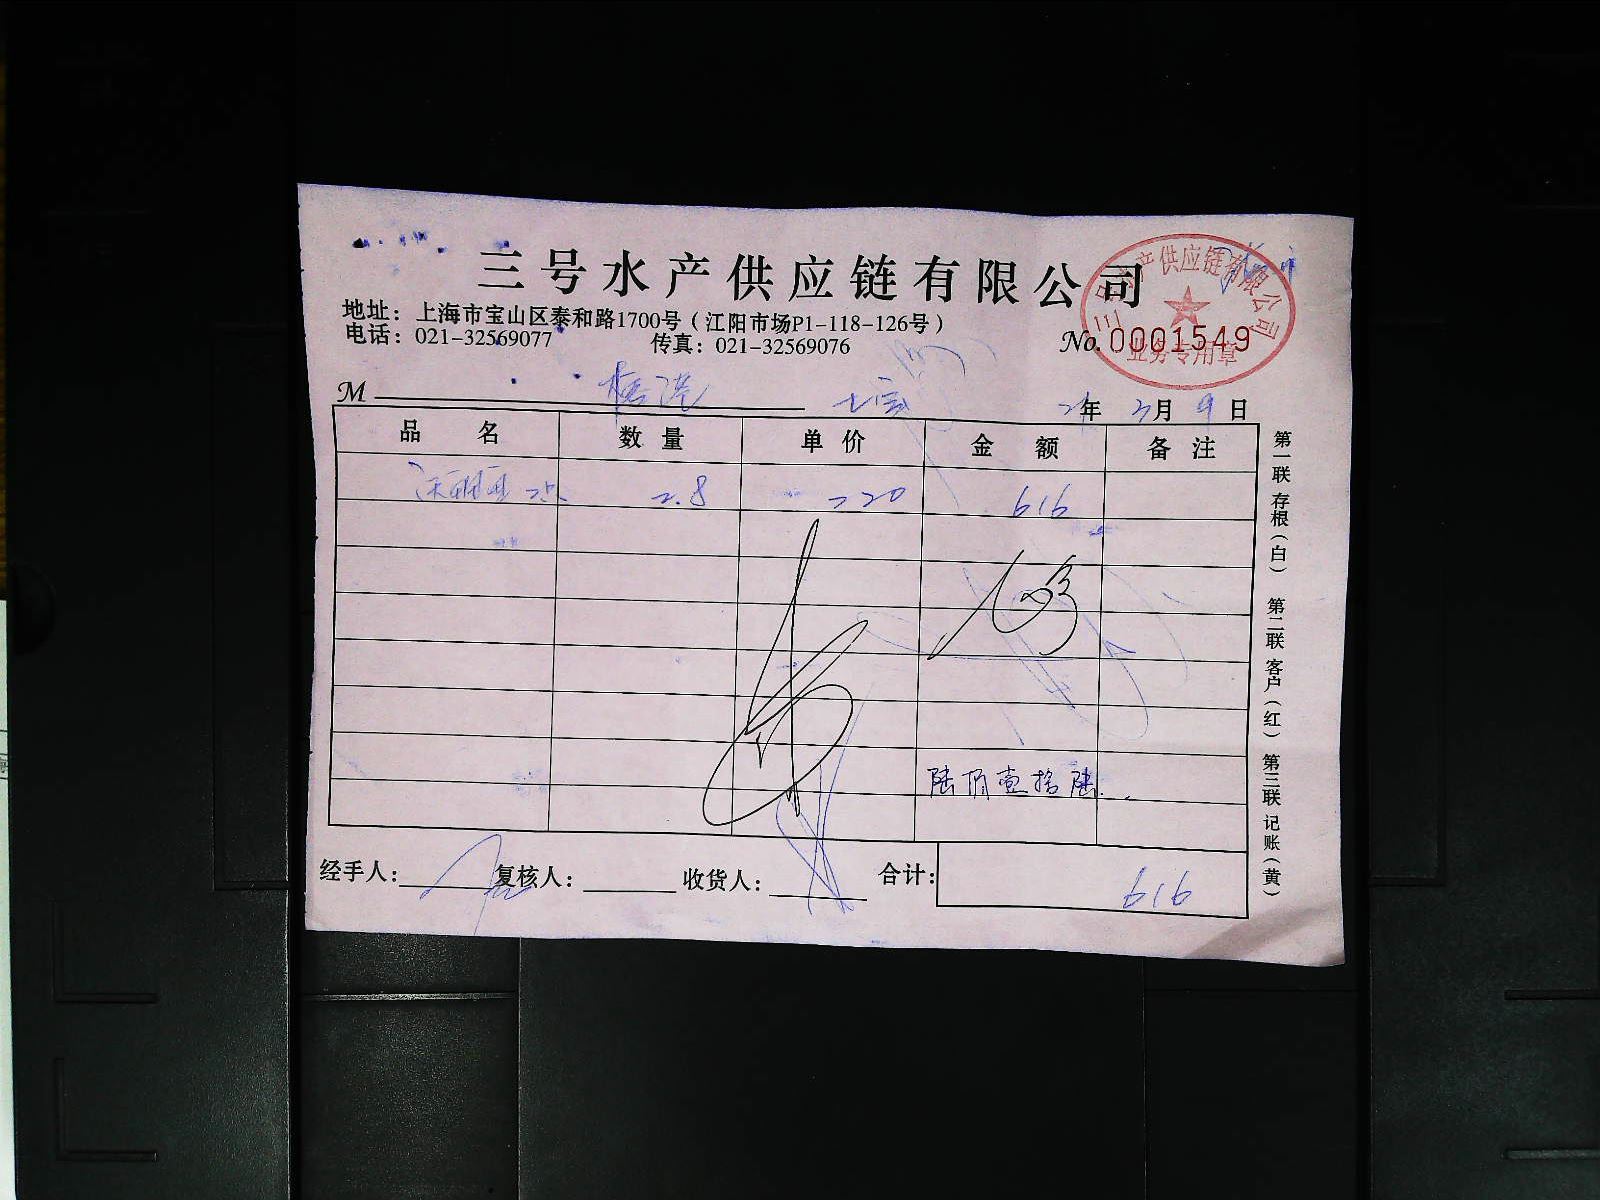 三号水产供应链有限公司
地址：上海市宝山区泰和路1700号（江阳市场P1-118-126号）
电话：021-32569077 传真：021-32569076
No. 0001549
三号水产供应链有限公司
业务专用章
M
21年 3月 9日
品名 数量 单价 金额 备注
2.8 220 616
陆佰壹拾陆
经手人： 复核人： 收货人： 合计： 616
第一联 存根（白） 第二联 客户（红） 第三联 记账（黄）